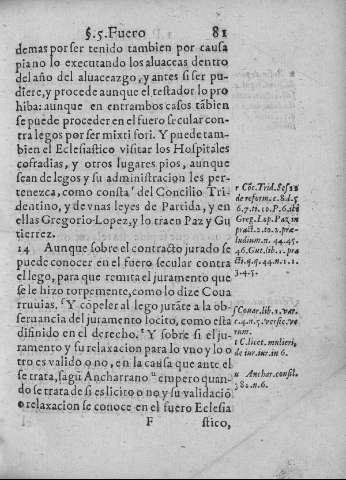 §.5.Fuero 81
demas por ser tenido tambien por causa
pia no lo executando los aluaceas dentro
del año del aluaceazgo, y antes si ser pu-
diere, y procede aunque el testador lo pro
hiba: aunque en entrambos casos tãbien
se puede proceder en el fuero secular con
tra legos por ser mixti fori. Y puede tam-
bien el Eclesiastico visitar los Hospitales
cofradias, y otros lugares pios, aunque
sean de legos y su administracion les per-
tenezca, como consta r del Concilio Tri-
dentino, y de vnas leyes de Partida, y en
ellas Gregorio Lopez, y lo traen Paz y Gu
tierrez.
14 Aunque sobre el contracto jurado se
puede conocer en el fuero secular contra
el lego, para que remita el juramento que
se le hizo torpemente, como lo dize Coua
rruuias. s Y cõpeler al lego jurãte a la ob-
seruancia del juramento licito, como esta
difinido en el derecho. t Y sobre si el ju-
ramento y su relaxacion para lo vno y lo o
tro es valido o no, en la causa que ante el
se trata, segũ Ancharrano u empero quan-
do se trata de si es licito o no y su validaciõ
o relaxacion se conoce en el fuero Eclesia
F stico,
r Cõc. Trid. Ses. 22
de reform. c. 8. d. 5
6. 7. ti. 10. P. 6. ibi
Greg. Lop. Paz in
pract. 2. to. 2. præ-
ludium. n. 44. 45.
46. Gut. lib. 1. pra
3. 4. 5.
s Couar. lib. 1. var.
c. 4. n. 5. versic. ve
rum.
t C. licet. mulieri,
de iur. iur. in 6.
u Anchar. consil.
82. n. 6.